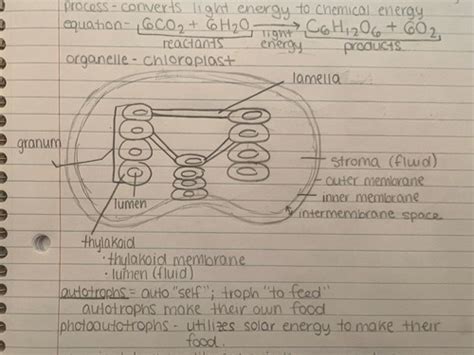 process - converts light energy to chemical energy
equation - 6CO2 + 6H2O → C6H12O6 + 6O2
reactants light energy products
organelle - chloroplast
lamella
granum
stroma (fluid)
outer membrane
inner membrane
intermembrane space
lumen
thylakoid
• thylakoid membrane
• lumen (fluid)
autotrophs = auto "self"; troph "to feed"
autotrophs make their own food
photoautotrophs - utilizes solar energy to make their
food.